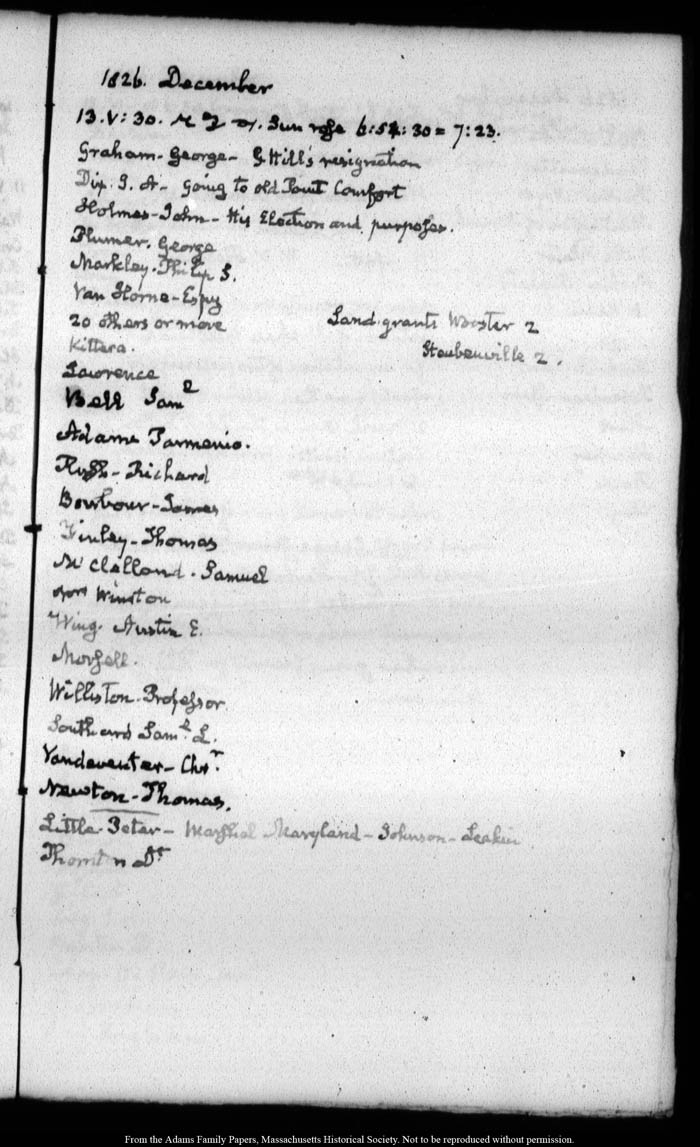 1826. December
13. V: 30. Sun rose 6:52:30 = 7:23.
Graham - George - G. Hill's resignation
Dix. J. A. - going to old Point Comfort
Holmes - John - His Election and purposes.
Plumer. George
Markley. Philip S.
Van Horne - Espy
20 others or more
Land grants Wooster 2
Steubenville 2.
Kittera.
Lawrence
Bell Sam.l
Adams Parmenio.
Rush - Richard
Barbour - James
Finley - Thomas
McClelland. Samuel
Winston
Wing. Austin E.
Morsell.
Williston. Professor
Southard Sam.l L.
Vandeventer - Chr.
Newton - Thomas.
Little Peter - Marshal Maryland - Johnson - Leakin
Thornton Dr
From the Adams Family Papers, Massachusetts Historical Society. Not to be reproduced without permission.